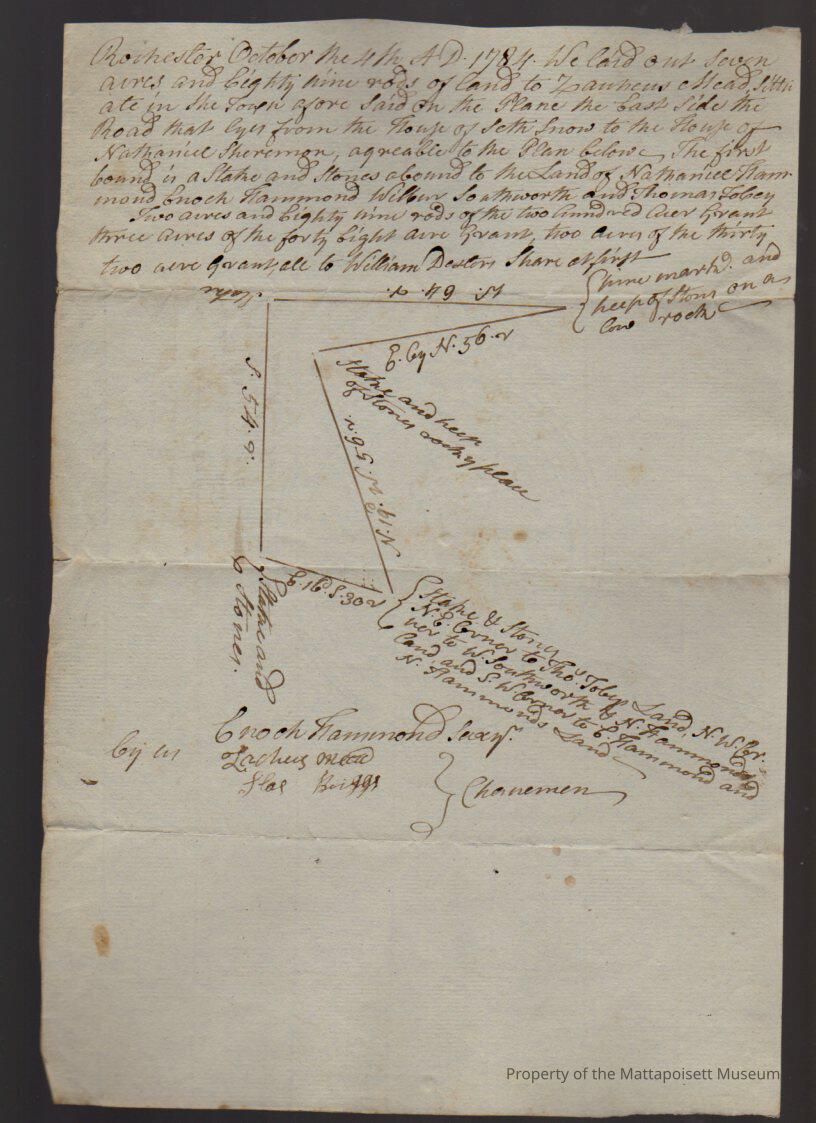 Rochester October the 4th A D. 1784. We laid out Seven
acres and Eighty nine rods of land to Zaccheus Mead, Sittu
ate in the Town afore Said on the Plane the East Side the
Road that lyes from the House of Seth Snow to the House of
Nathaniel Sheremon, agreable to the Plan below The first
bound is a Stake and Stones abound to the Land of Nathaniel Ham-
mond Enoch Hammond Wilbur Southworth and Thomas Tobey
Two acres and Eighty nine rods of the two hundred acer Grant
three acres of the forty Eight acre Grant, two acres of the thirty
two acre Grant, all to William Dexters Share at first
Stake
W. 49 r.
pine markd and
heep of Stons on a
low rock
E. by N. 56. r
S. 54. r.
Stake and heep
of Stones rocky place
N. 19. W. 56. r.
E. 16. S. 30 r
Stake and
Stones.
Stake & Stones
N. E. Corner to Tho.s Tobys Land, N. W. Cor-
ner to W. Southworth & N. Hammonds
Land and S. W Corner to E Hammond and
N. Hammonds Land
by us
Enoch Hammond Survr.
Zacheus Mead
Silas Briggs
Chainemen
Property of the Mattapoisett Museum